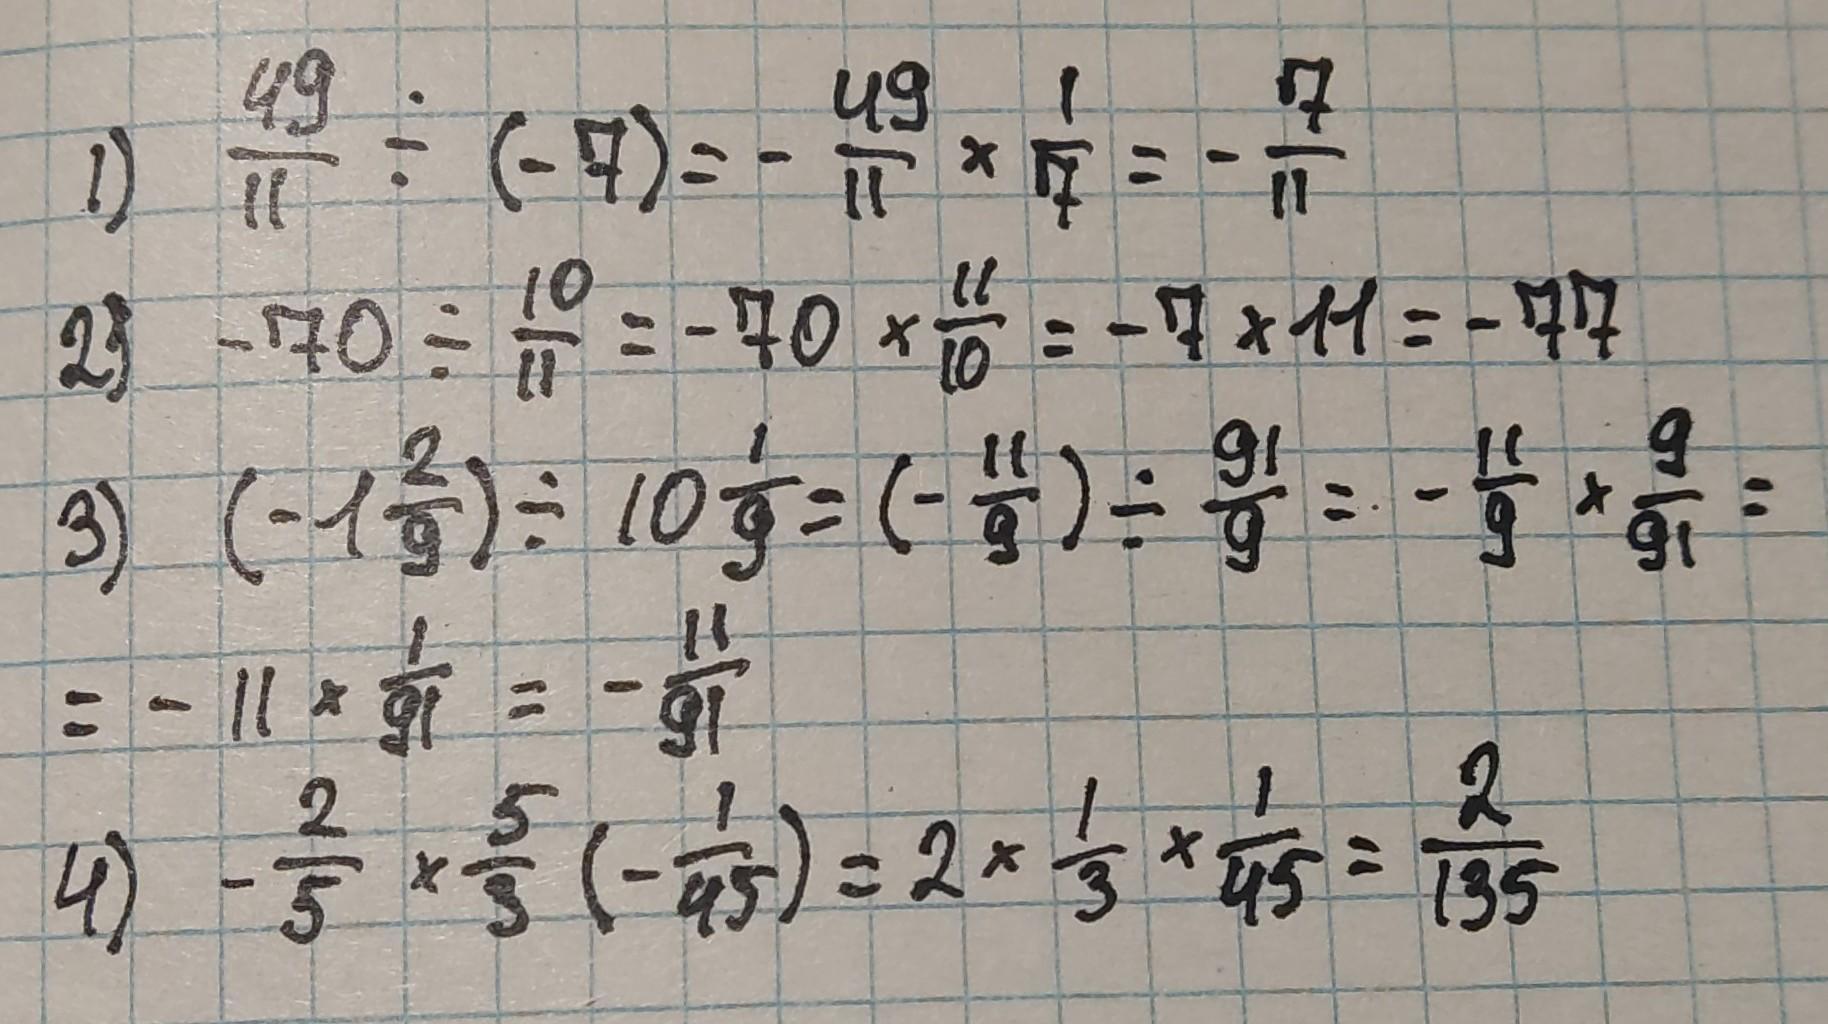 1) 49/11 ÷ (-7) = - 49/11 × 1/7 = - 7/11
2) -70 ÷ 10/11 = -70 × 11/10 = -7 × 11 = -77
3) (-1 2/9) ÷ 10 1/9 = (- 11/9) ÷ 91/9 = - 11/9 × 9/91 =
= - 11 × 1/91 = - 11/91
4) - 2/5 × 5/3 (- 1/45) = 2 × 1/3 × 1/45 = 2/135